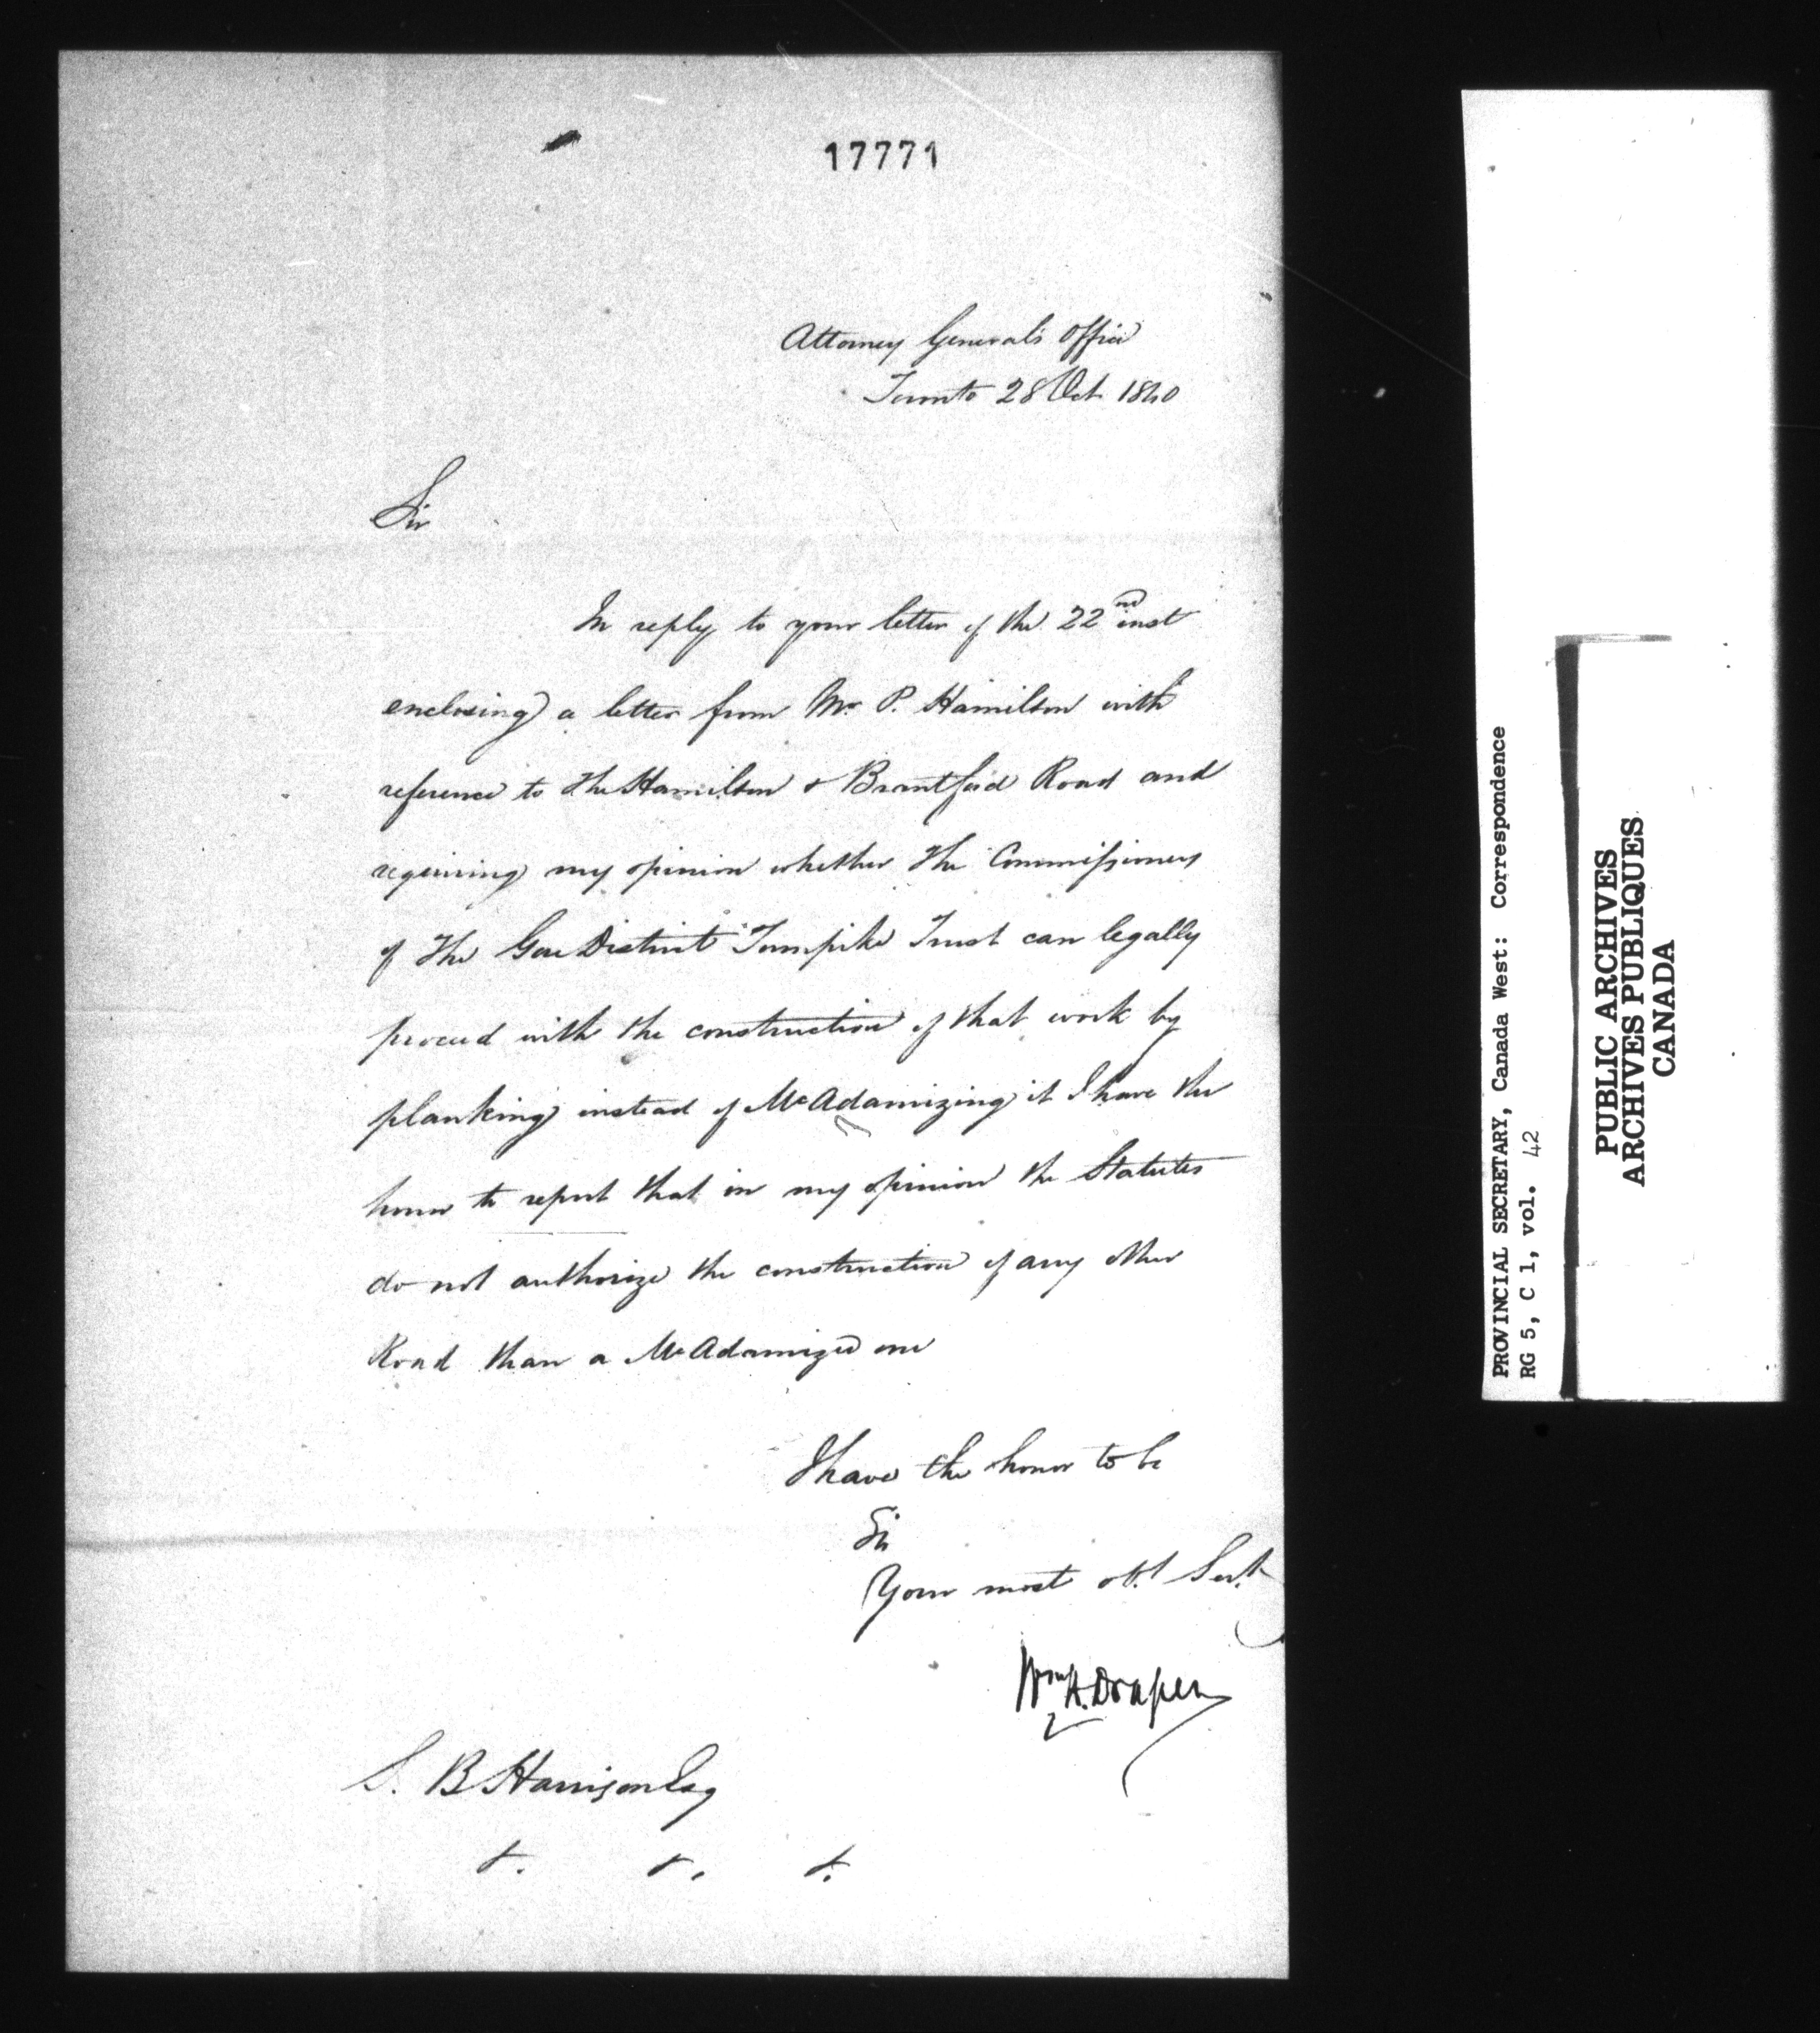 17771
Attorney General's Office
Toronto 28 Oct 1840
Sir
In reply to your letter of the 22nd inst
enclosing a letter from Mr P. Hamilton with
reference to the Hamilton & Brantford Road and
requiring my opinion whether the Commissioners
of the Gore District Turnpike Trust can legally
proceed with the construction of that work by
planking instead of McAdamizing it I have the
honor to report that in my opinion the Statutes
do not authorize the construction of any other
Road than a McAdamized one
I have the honor to be
Sir
Your most obt Servt
Wm H. Draper
S. B Harrison Esq
&. &. &.
PROVINCIAL SECRETARY, Canada West: Correspondence
RG 5, C 1, vol. 42
PUBLIC ARCHIVES
ARCHIVES PUBLIQUES
CANADA